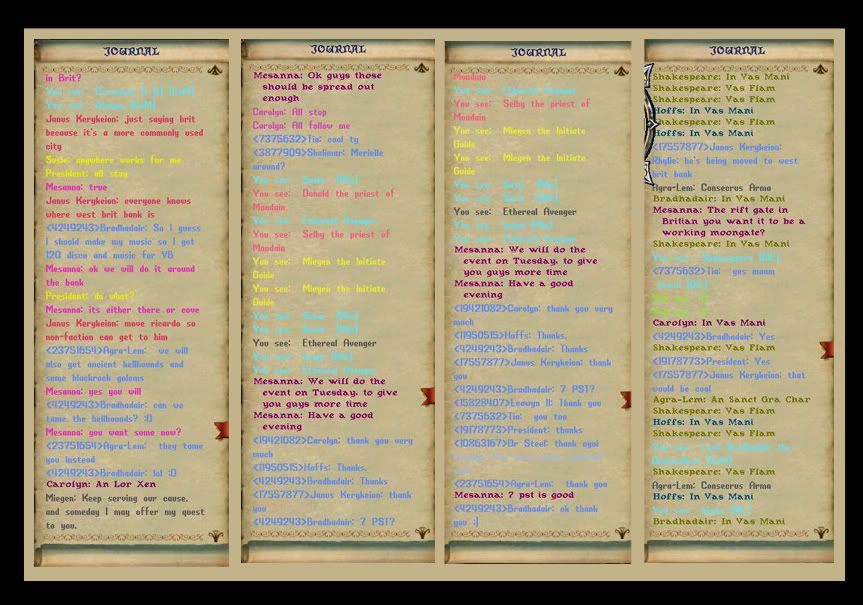 JOURNAL
in Brit?
You see:
You see:
Janus Kerykeion: just saying brit
because it's a more commonly used
city
Susie: anywhere works for me
President: all stay
Mesanna: true
Janus Kerykeion: everyone knows
where west brit bank is
<4249243>Bradhadair: So I guess
I should make my music so I got
120 disco and music for VB
Mesanna: ok we will do it around
the bank
President: do what?
Mesanna: its either there or cove
Janus Kerykeion: move ricardo so
non-faction can get to him
<23751654>Agra-Lem: we will
also get ancient hellhounds and
some blackrock golems
Mesanna: yes you will
<4249243>Bradhadair: can we
tame the hellhounds? :D
Mesanna: you want some now?
<23751654>Agra-Lem: they tame
you instead
<4249243>Bradhadair: lol :D
Carolyn: An Lor Xen
Miegen: Keep serving our cause,
and someday I may offer my quest
to you.
JOURNAL
Mesanna: Ok guys those
should be spread out
enough
Carolyn: All stop
Carolyn: All follow me
<7375632>Tia: cool ty
<3877909>Shalimar: Merielle
around?
You see:
You see: Donald the priest of
Mondain
You see: Ethereal Avenger
You see: Selby the priest of
Mondain
You see: Miegen the Initiate
Guide
You see: Miegen the Initiate
Guide
You see:
You see:
You see: Ethereal Avenger
You see:
You see: Ethereal Avenger
Mesanna: We will do the
event on Tuesday, to give
you guys more time
Mesanna: Have a good
evening
<19421082>Carolyn: thank you very
much
<11950515>Hoffs: Thanks,
<4249243>Bradhadair: Thanks
<17557877>Janus Kerykeion: thank
you
<4249243>Bradhadair: 7 PST?
JOURNAL
Mondain
You see: Ethereal Avenger
You see: Selby the priest of
Mondain
You see: Miegen the Initiate
Guide
You see: Miegen the Initiate
Guide
You see:
You see:
You see: Ethereal Avenger
You see:
You see: Ethereal Avenger
Mesanna: We will do the
event on Tuesday, to give
you guys more time
Mesanna: Have a good
evening
<19421082>Carolyn: thank you very
much
<11950515>Hoffs: Thanks,
<4249243>Bradhadair: Thanks
<17557877>Janus Kerykeion: thank
you
<4249243>Bradhadair: 7 PST?
<15828407>Leowyn II: Thank you
<7375632>Tia: you too
<19178773>President: thanks
<10863167>Dr Steel: thank ayol
<23751654>Agra-Lem: thank you
Mesanna: 7 pst is good
<4249243>Bradhadair: ok thank
you :]
JOURNAL
Shakespeare: In Vas Mani
Shakespeare: Vas Flam
Shakespeare: Vas Flam
Hoffs: In Vas Mani
Shakespeare: Vas Flam
Hoffs: In Vas Mani
<17557877>Janus Kerykeion:
Rhylie: he's being moved to west
brit bank
Agra-Lem: Consecrus Arma
Bradhadair: In Vas Mani
Mesanna: The rift gate in
Britian you want it to be a
working moongate?
Shakespeare: In Vas Mani
You see: Shakespeare
<7375632>Tia: yes maam
You see:
You see:
Carolyn: In Vas Mani
<4249243>Bradhadair: Yes
Shakespeare: Vas Flam
<19178773>President: Yes
<17557877>Janus Kerykeion: that
would be cool
Agra-Lem: An Sanct Gra Char
Shakespeare: Vas Flam
Hoffs: In Vas Mani
Shakespeare: Vas Flam
Shakespeare: Vas Flam
Agra-Lem: Consecrus Arma
Hoffs: In Vas Mani
You see:
Bradhadair: In Vas Mani